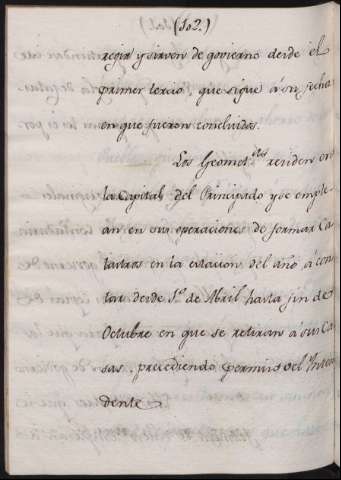 (102.)
regir y sirven de govierno desde el
primer tercio que sigue á su fecha
en que fueron concluidas.
Los Geomet.ras residen en
la Capital del Principado y se emple-
an en sus operaciones de formar Ca-
tastros en la estacion del año á con-
tar desde 1.º de Abril hasta fin de
Octubre en que se retiran á sus Ca-
sas, precediendo permiso del Inten-
dente.